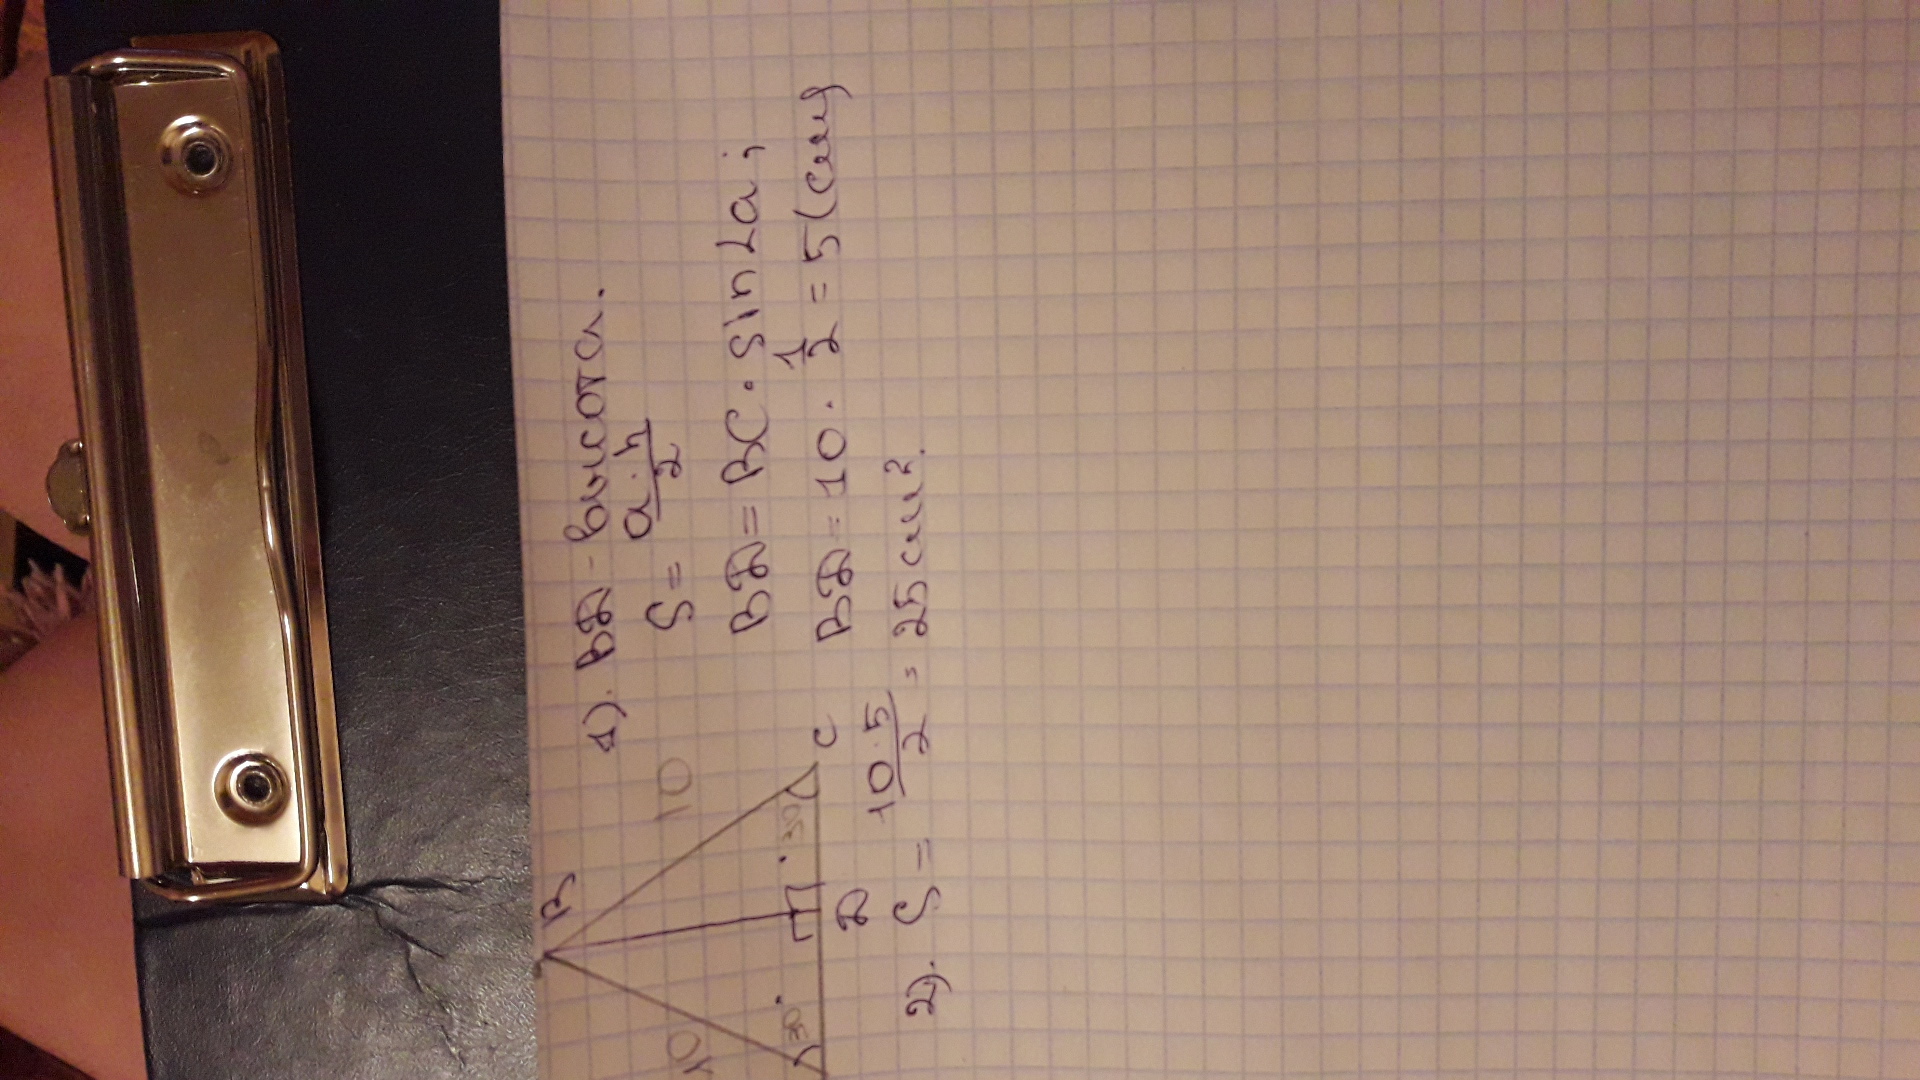 B
10
10
30°
30°
C
D
1). BD - висота.
S = a·h/2
BD = BC · sin∠a;
BD = 10 · 1/2 = 5 (см)
2). S = 10·5/2 = 25 см².